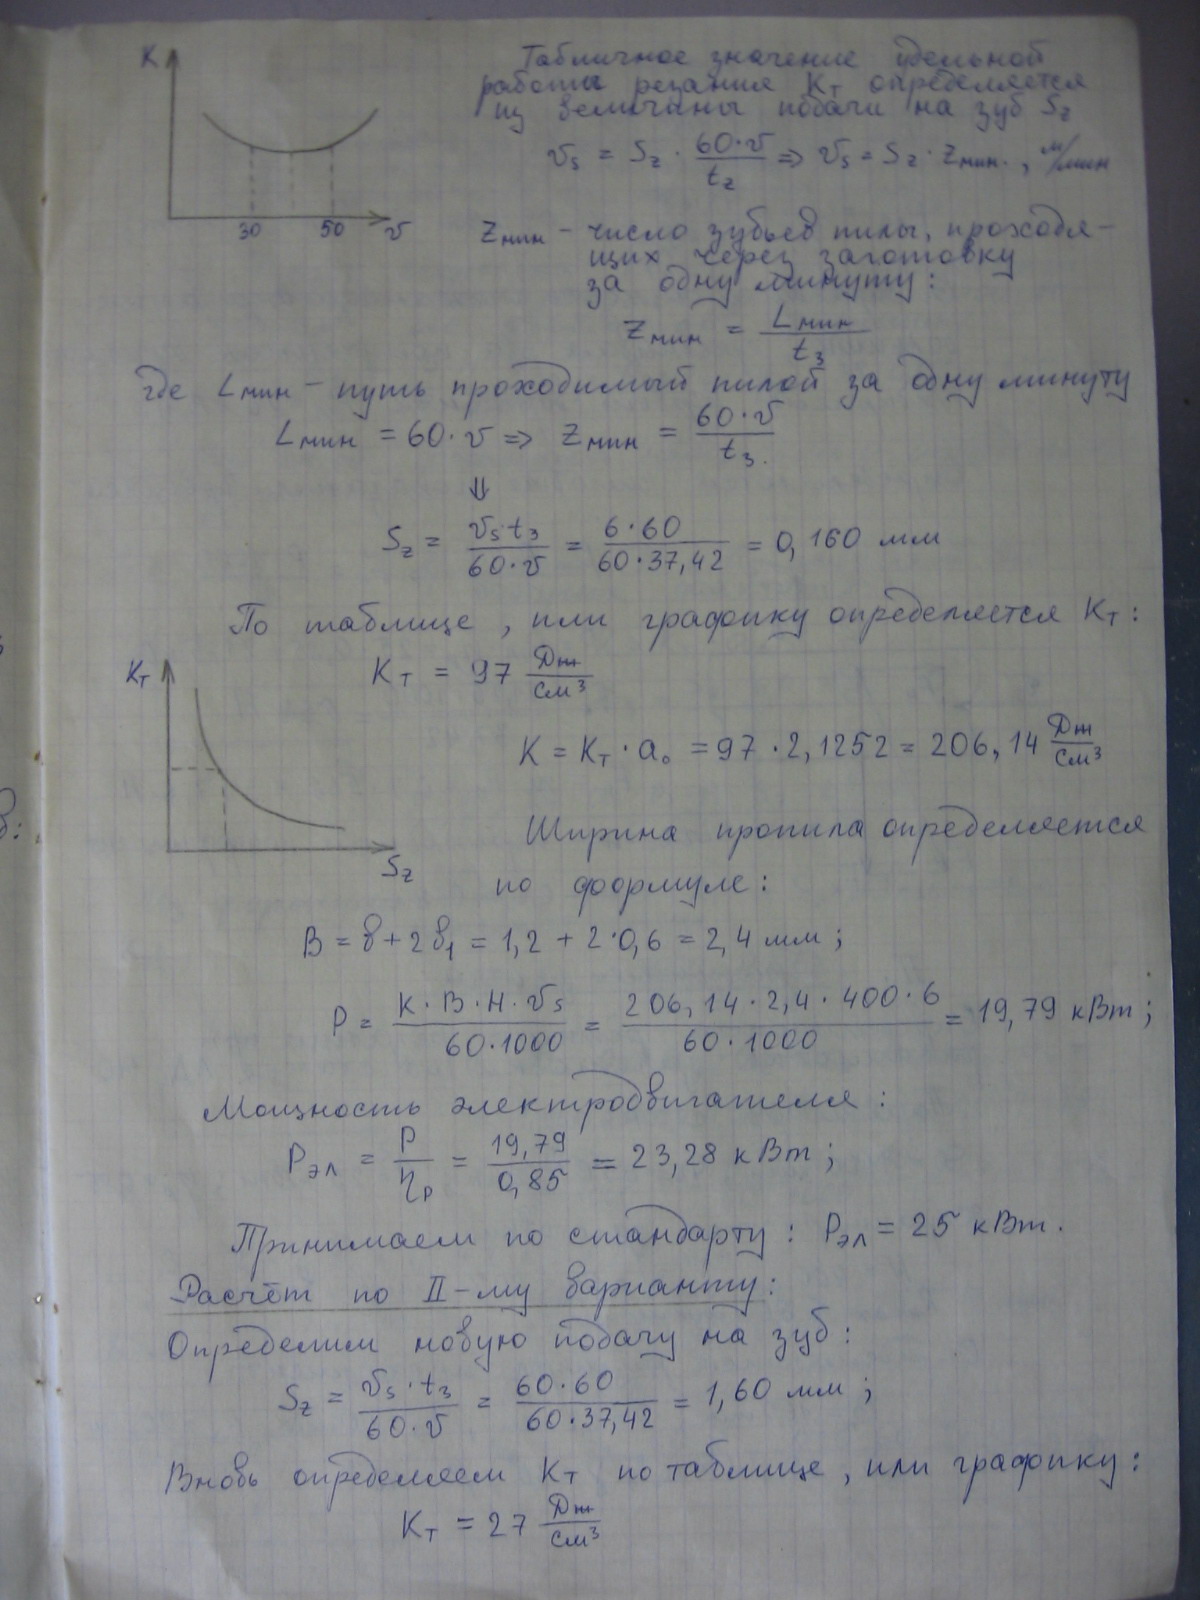 K
Табличное значение удельной
работы резания Kт определяется
из величины подачи на зуб Sz
vs = Sz · 60·v / tz ⇒ vs = Sz · zмин. , м/мин
30 50 v
zмин – число зубьев пилы, проходя-
щих через заготовку
за одну минуту:
zмин = Lмин / tз
где Lмин – путь проходимый пилой за одну минуту
Lмин = 60·v ⇒ zмин = 60·v / tз.
⇓
Sz = vs·tз / 60·v = 6·60 / 60·37,42 = 0,160 мм
По таблице, или графику определяется Kт:
Kт
Kт = 97 Дж/см³
K = Kт·a₀ = 97·2,1252 = 206,14 Дж/см³
Ширина пропила определяется
Sz
по формуле:
B = b + 2b₁ = 1,2 + 2·0,6 = 2,4 мм;
P = K·B·H·vs / 60·1000 = 206,14·2,4·400·6 / 60·1000 = 19,79 кВт;
Мощность электродвигателя:
Pэл = P / ηp = 19,79 / 0,85 = 23,28 кВт;
Принимаем по стандарту: Pэл = 25 кВт.
Расчёт по II-му варианту:
Определим новую подачу на зуб:
Sz = vs·tз / 60·v = 60·60 / 60·37,42 = 1,60 мм;
Вновь определяем Kт по таблице, или графику:
Kт = 27 Дж/см³